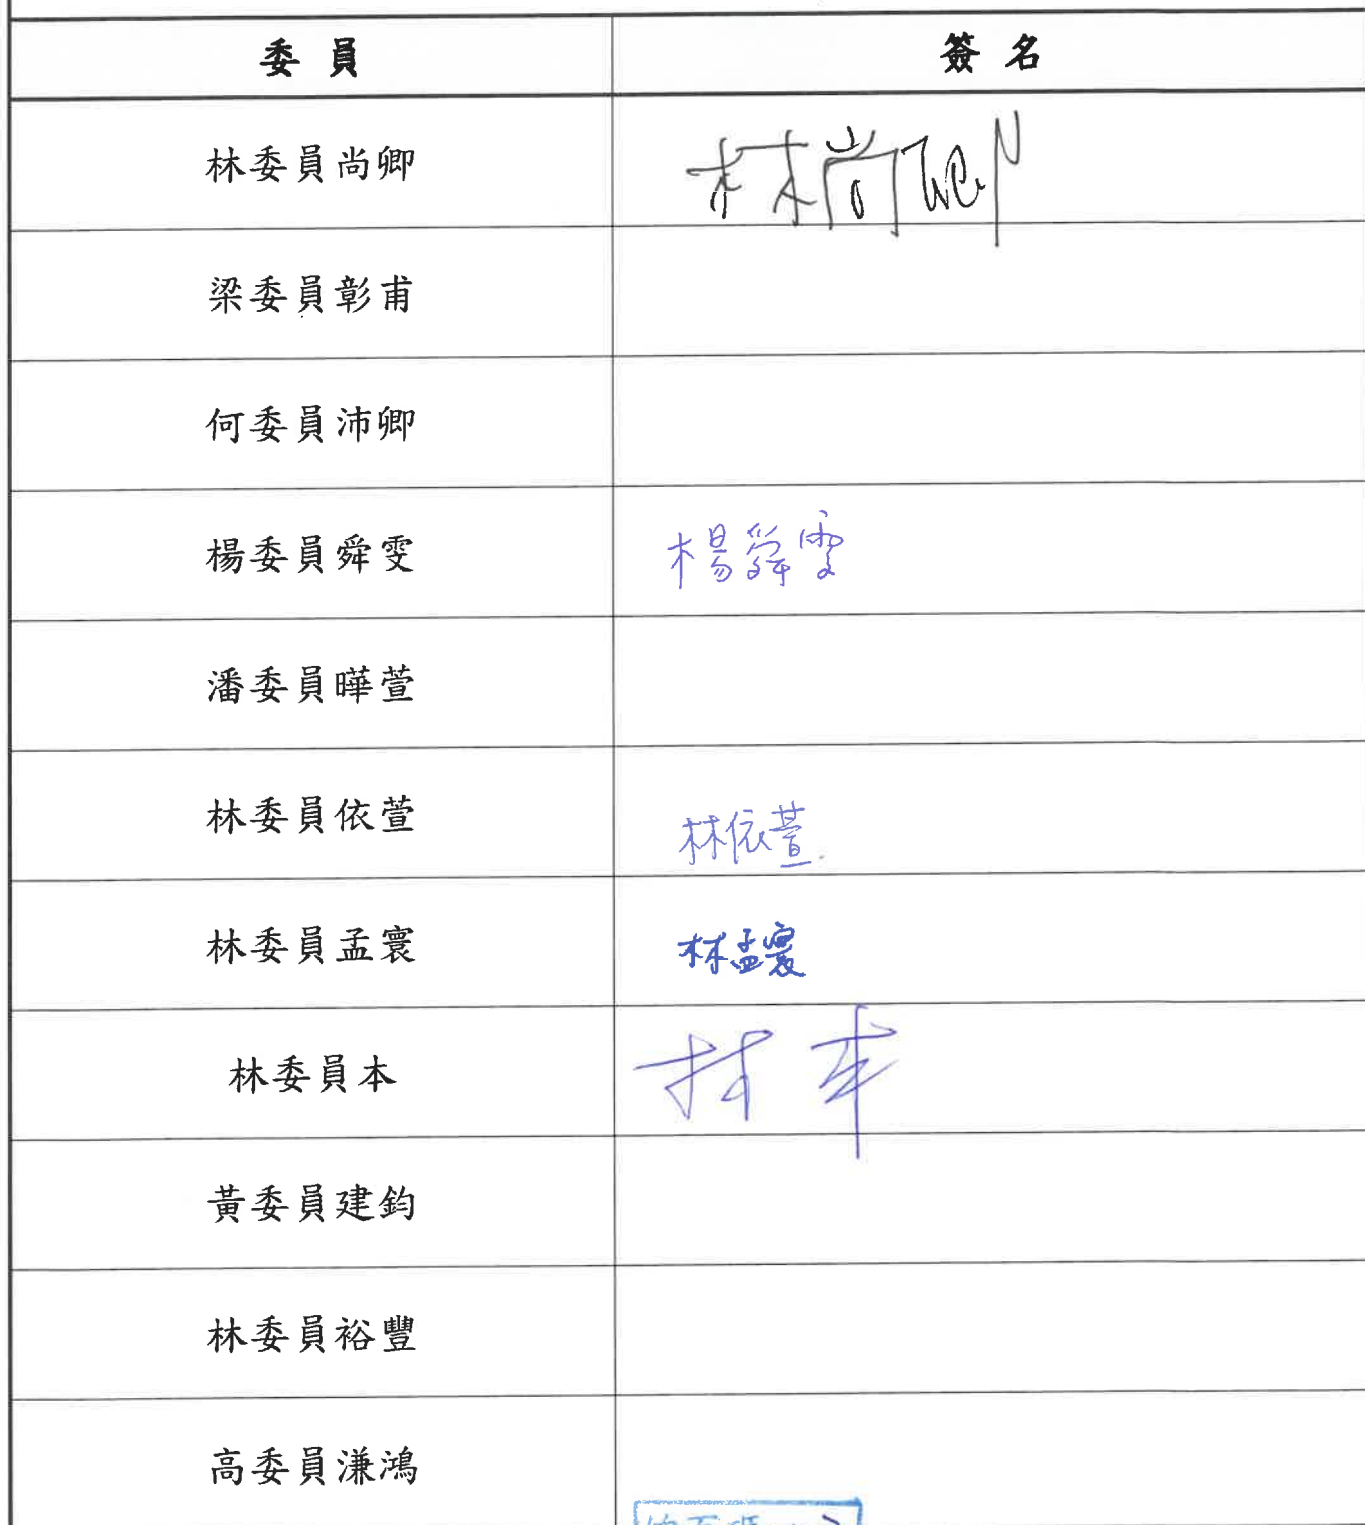 委員 簽名
林委員尚卿 林尚卿
梁委員彰甫
何委員沛卿
楊委員舜雯 楊舜雯
潘委員曄萱
林委員依萱 林依萱
林委員孟寰 林孟寰
林委員本 林本
黃委員建鈞
林委員裕豐
高委員濂鴻